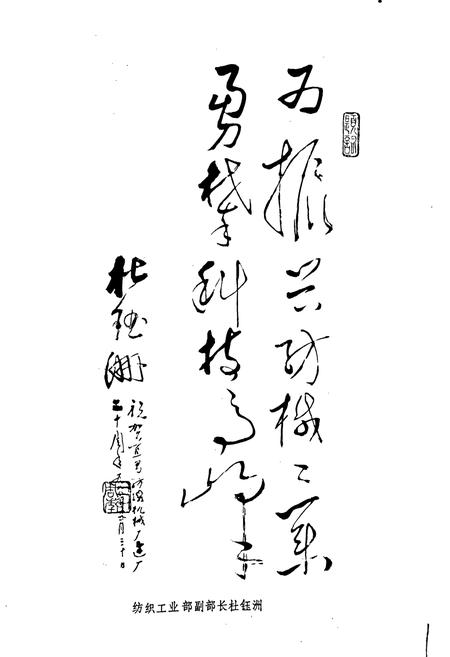 为振兴纺机工业
勇攀科技高峰
杜钰洲
祝贺宜昌纺织机械厂建厂
二十周年
纺织工业部副部长杜钰洲